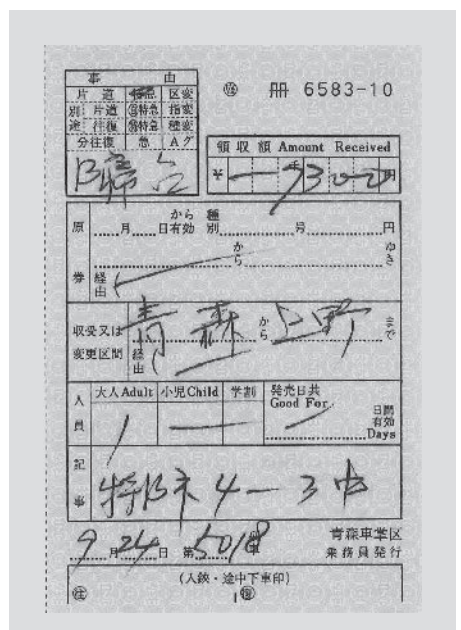 事 由
片道 特急 区変
別 片道 特急 指変
途 往復 特急 種変
分 往復 急 Aグ
B寝台
冊 6583-10
領収額 Amount Received
¥ 7300円
原券
月 日から有効 種別 号 円
から ゆき
経由
収受又は変更区間 青森 から 上野 まで
経由
人員
大人Adult 小児Child 学割 発売日共 Good For 日間有効 Days
1
記事
4-3中
9月24日 第5018
青森車掌区
乗務員発行
(入鋏・途中下車印)